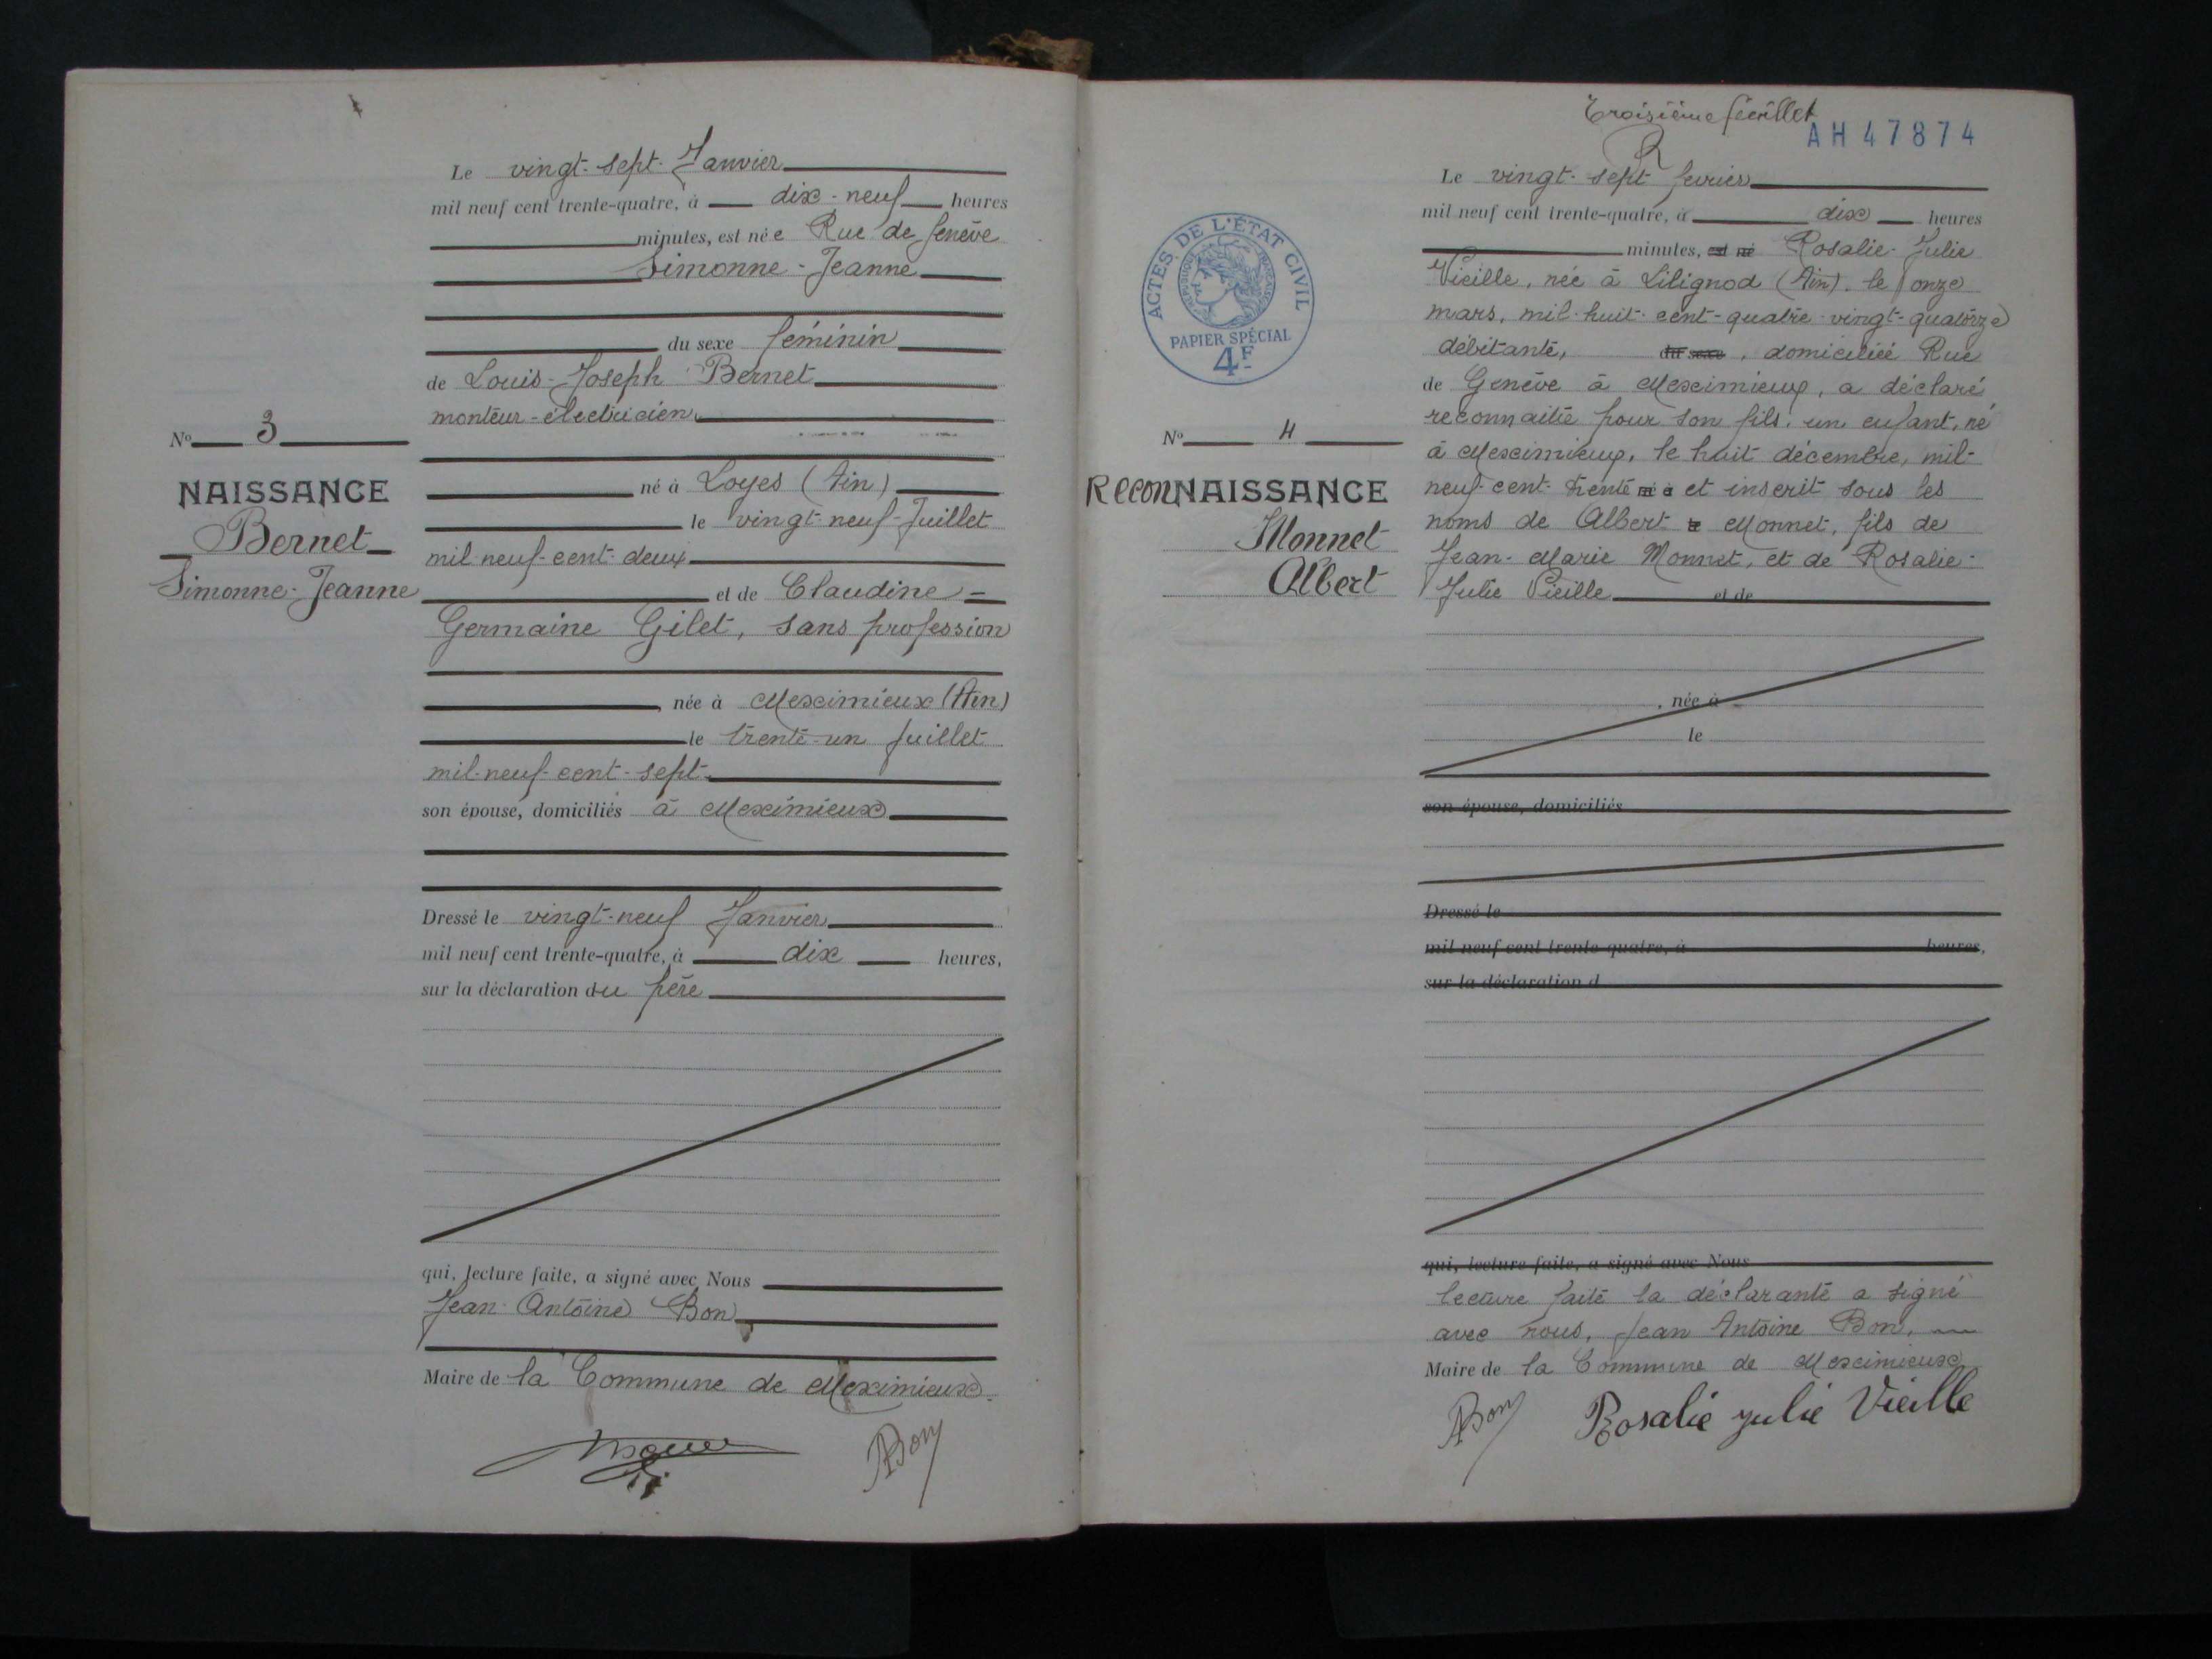 Le vingt-sept Janvier
mil neuf cent trente-quatre, à dix-neuf heures
minutes, est née Rue de Genève
Simonne-Jeanne
du sexe féminin
de Louis-Joseph Bernet
monteur-électricien
né à Loyes (Ain)
le vingt-neuf Juillet
mil-neuf-cent-deux
et de Claudine-
Germaine Gilet, sans profession
née à Meximieux (Ain)
le trente-un juillet
mil-neuf-cent-sept
son épouse, domiciliés à Meximieux
Dressé le vingt-neuf Janvier
mil neuf cent trente-quatre, à dix heures,
sur la déclaration du père
qui, lecture faite, a signé avec Nous
Jean Antoine Bon
Maire de la Commune de Meximieux
ABon
No 3
NAISSANCE
Bernet
Simonne-Jeanne
Troisième feuillet
AH 47874
ACTES DE L'ÉTAT CIVIL
RÉPUBLIQUE FRANÇAISE
PAPIER SPÉCIAL
4F
No 4
RECONNAISSANCE
Monnet
Albert
Le vingt-sept février
mil neuf cent trente-quatre, à dix heures
minutes, est né Rosalie-Julie
Vieille, née à Lilignod (Ain), le onze
mars, mil-huit-cent-quatre-vingt-quatorze
débitante, du sexe, domiciliée Rue
de Genève à Meximieux, a déclaré
reconnaitre pour son fils, un enfant, né
à Meximieux, le huit décembre, mil-
neuf-cent-trente né à et inscrit sous les
noms de Albert le Monnet, fils de
Jean-Marie Monnet, et de Rosalie-
Julie Vieille et de
, née à
le
son épouse, domiciliés
Dressé le
mil neuf cent trente-quatre, à heures,
sur la déclaration d
qui, lecture faite, a signé avec Nous
lecture faite la déclarante a signé
avec nous, Jean Antoine Bon,
Maire de la Commune de Meximieux
ABon Rosalie Julie Vieille